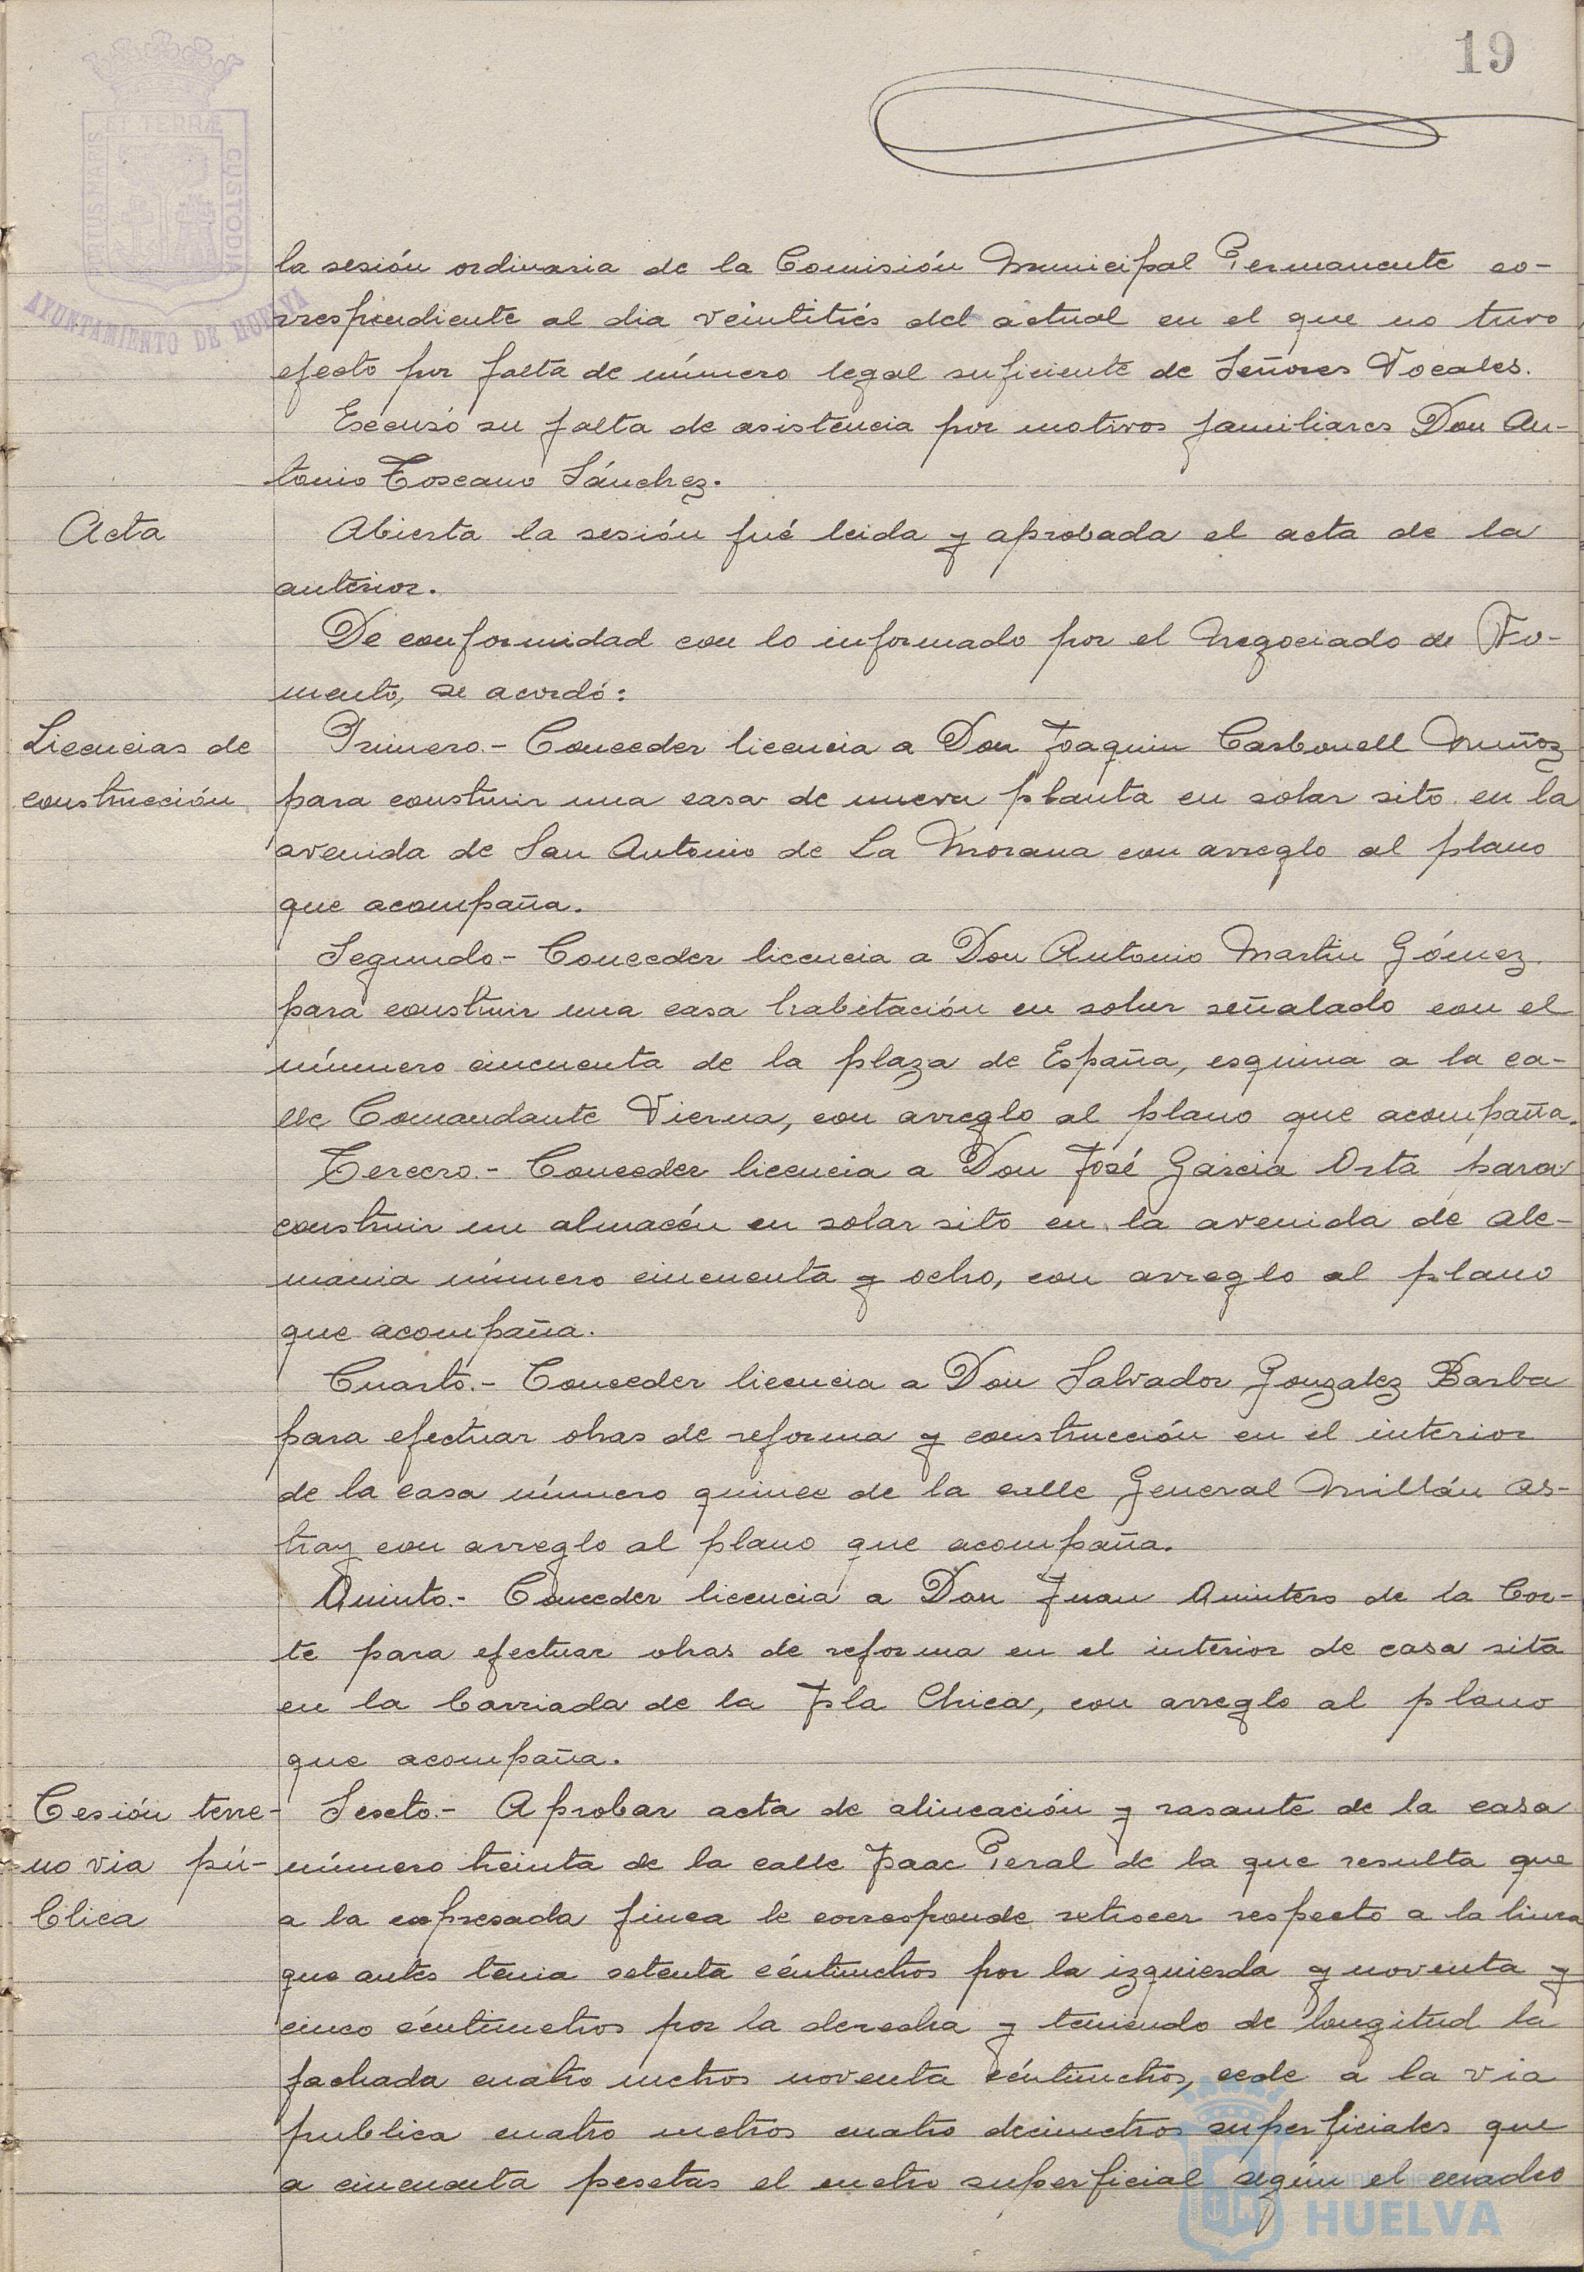 19
PORTUS MARIS ET TERRÆ CUSTODIA
AYUNTAMIENTO DE HUELVA
la sesión ordinaria de la Comisión Municipal Permanente co-
rrespondiente al dia veintitrés del actual en el que no tuvo
efecto por falta de número legal suficiente de Señores Vocales.
Escusó su falta de asistencia por motivos familiares Don An-
tonio Toscano Sánchez.
Acta
Abierta la sesión fué leida y aprobada el acta de la
anterior.
De conformidad con lo informado por el Negociado de Fo-
mento, se acordó:
Licencias de
construcción
Primero.- Conceder licencia a Don Joaquin Carbonell Muñoz
para construir una casa de nueva planta en solar sito en la
avenida de San Antonio de La Morana con arreglo al plano
que acompaña.
Segundo.- Conceder licencia a Don Antonio Martin Gómez
para construir una casa habitación en solar señalado con el
número cincuenta de la plaza de España, esquina a la ca-
lle Comandante Vierna, con arreglo al plano que acompaña.
Tercero.- Conceder licencia a Don José Garcia Orta para
construir un almacén en solar sito en la avenida de Ale-
mania número cincuenta y ocho, con arreglo al plano
que acompaña.
Cuarto.- Conceder licencia a Don Salvador Gonzalez Barba
para efectuar obras de reforma y construcción en el interior
de la casa número quince de la calle General Millán As-
tray con arreglo al plano que acompaña.
Quinto.- Conceder licencia a Don Juan Quintero de la Cor-
te para efectuar obras de reforma en el interior de casa sita
en la barriada de la Isla Chica, con arreglo al plano
que acompaña.
Cesión terre-
no via pú-
blica
Sexto.- Aprobar acta de alineación y rasante de la casa
número treinta de la calle Isaac Peral de la que resulta que
a la expresada finca le corresponde retrocer respecto a la linea
que antes tenia setenta céntimetros por la izquierda y noventa y
cinco céntimetros por la derecha y teniendo de longitud la
fachada cuatro metros noventa céntimetros, cede a la via
publica cuatro metros cuatro decimetros superficiales que
a cincuenta pesetas el metro superficial según el cuadro
Ayuntamiento de
HUELVA